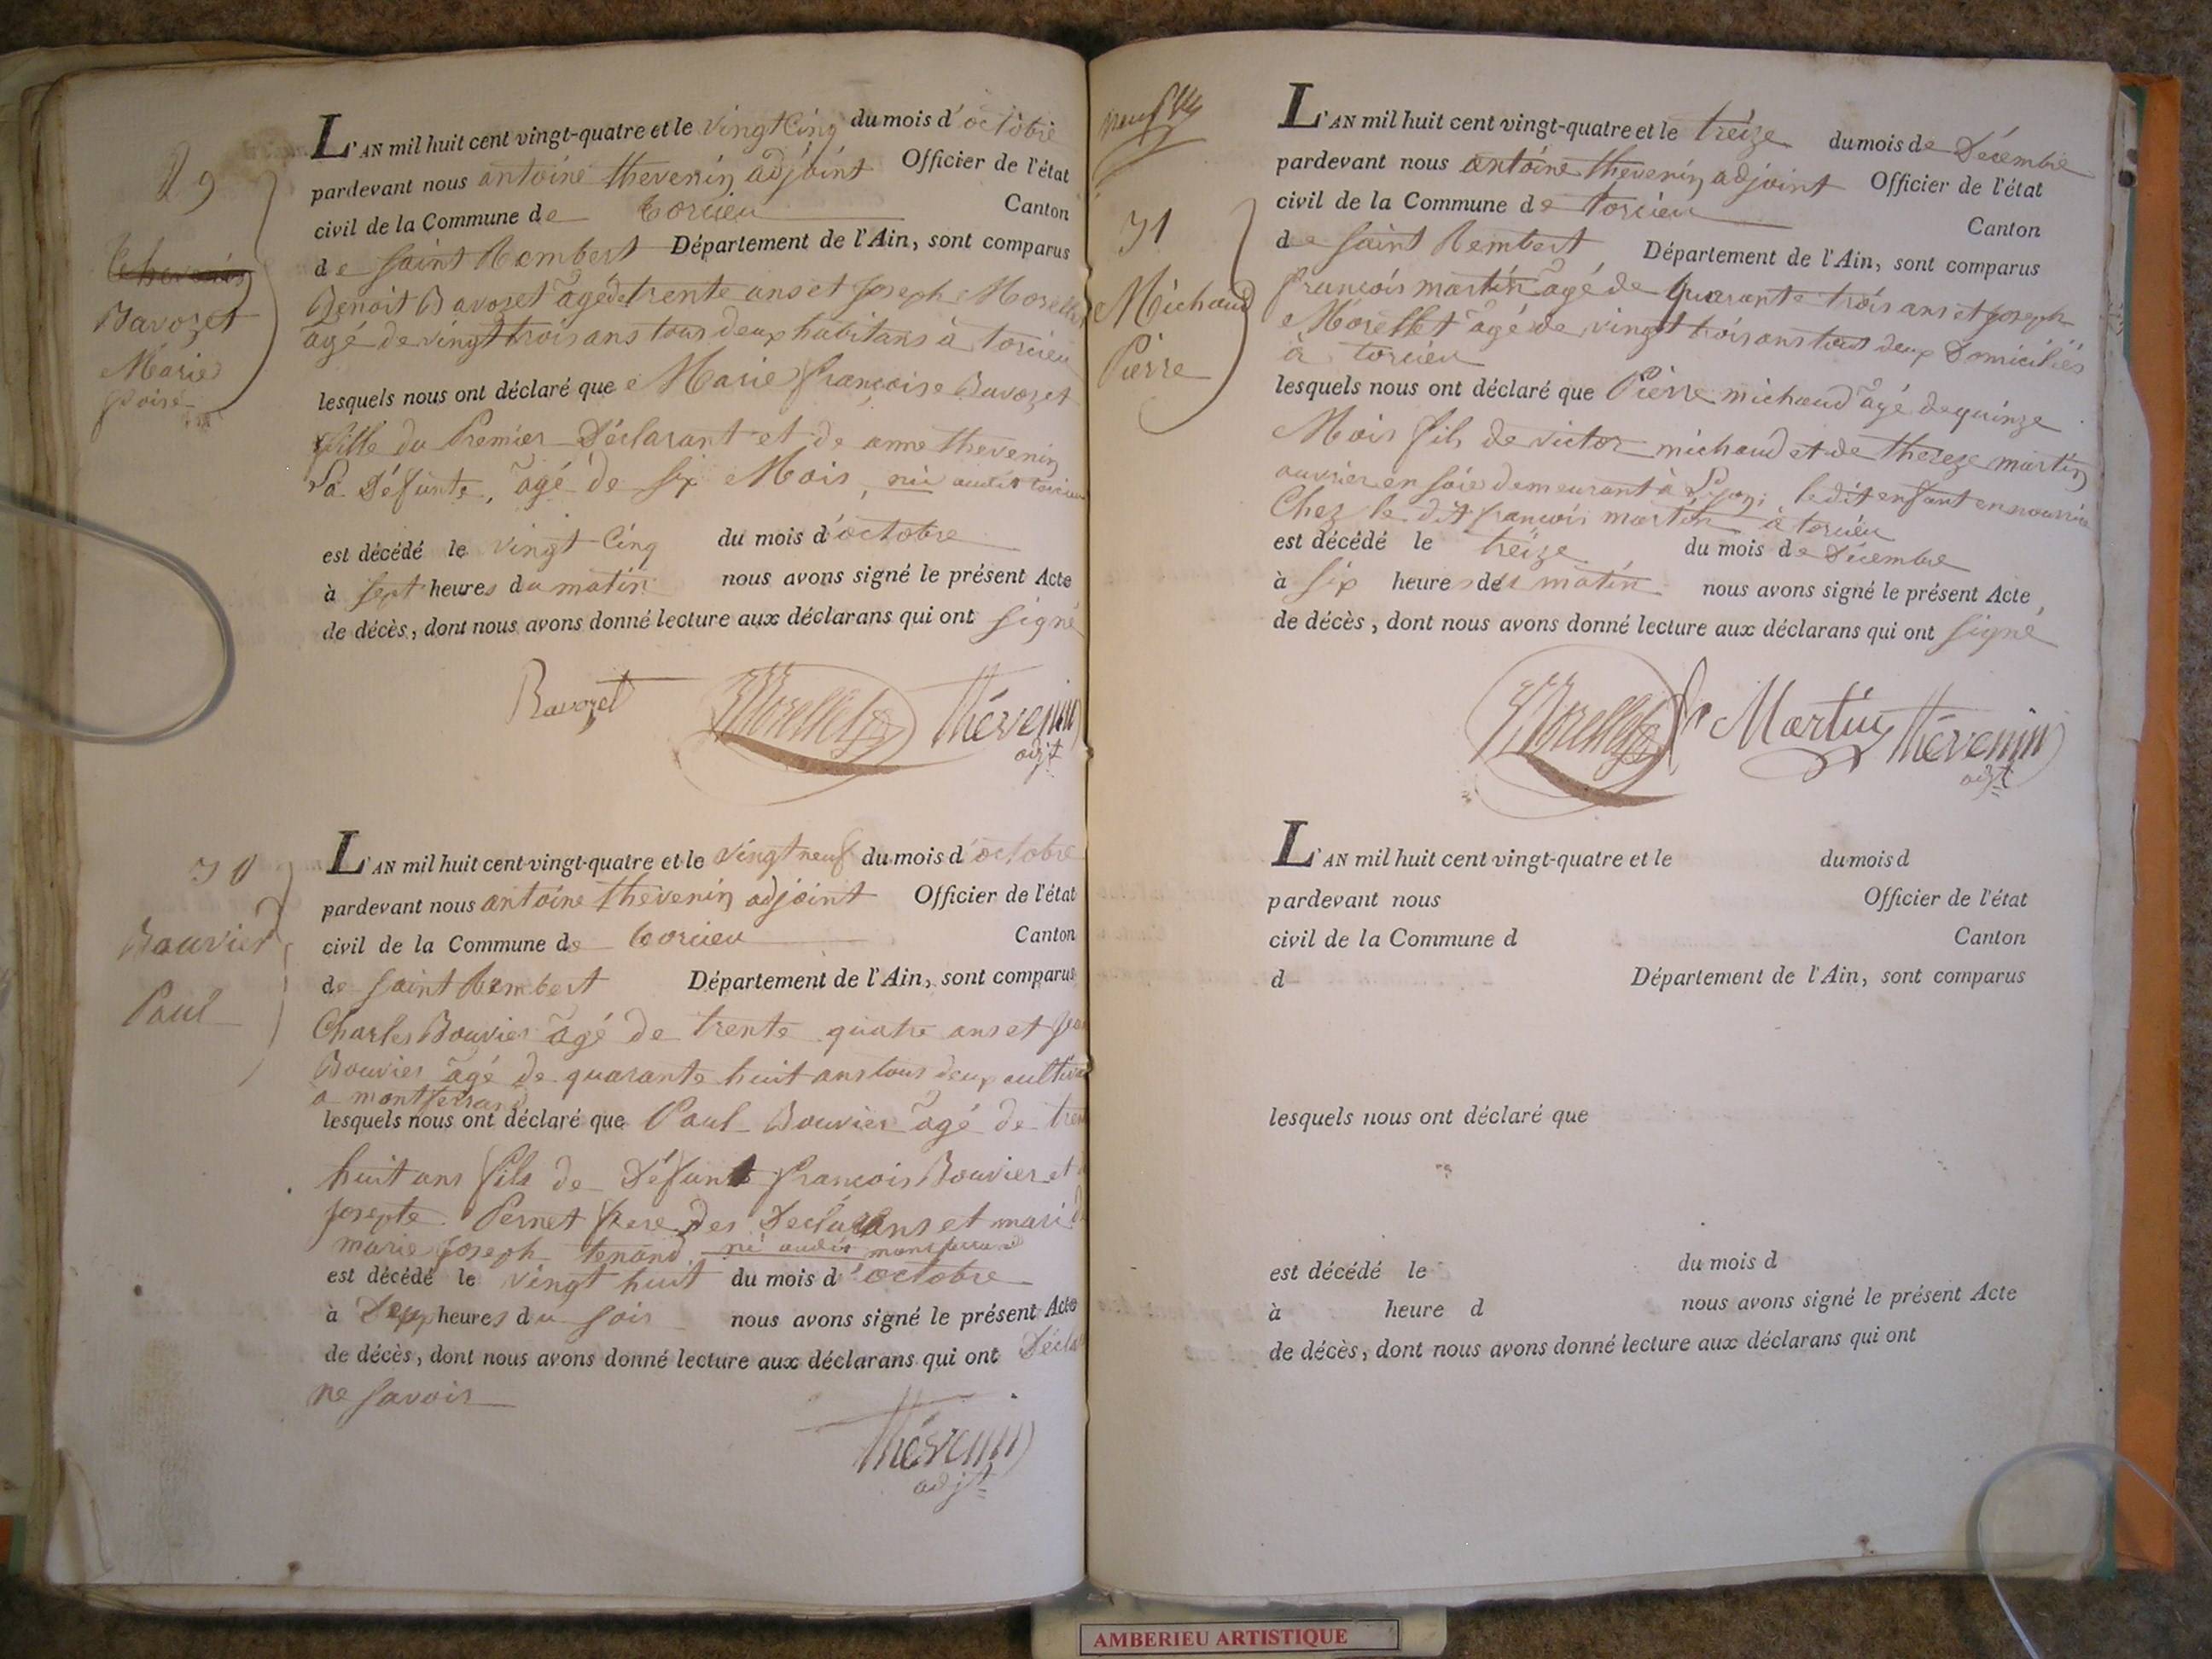 29
Thevenin
Bavozet
Marie
L'AN mil huit cent vingt-quatre et le vingt Cinq du mois d'octobre
pardevant nous antoine thevenin adjoint Officier de l'état
civil de la Commune de torcieu Canton
de saint Rembert Département de l'Ain, sont comparus
Benoit Bavozet âgé de trente ans et joseph Morellet
âgé de vingt trois ans tous deux habitans à torcieu
lesquels nous ont déclaré que Marie françoise Bavozet
fille du Premier Déclarant et de anne thevenin
Sa Défunte, âgé de six Mois, née audit torcieu
est décédé le vingt Cinq du mois d'octobre
à sept heures du matin nous avons signé le présent Acte
de décès, dont nous avons donné lecture aux déclarans qui ont signé
Bavozet Morellet Thévenin
adjt
30
Bouvier
Paul
L'AN mil huit cent vingt-quatre et le vingt neuf du mois d'octobre
pardevant nous antoine thevenin adjoint Officier de l'état
civil de la Commune de torcieu Canton
de saint Rembert Département de l'Ain, sont comparus
Charles Bouvier âgé de trente quatre ans et
Bouvier âgé de quarante huit ans tous deux
a montferrand
lesquels nous ont déclaré que Paul Bouvier âgé de
huit ans fils de Défunt françois Bouvier et
josepte Pernet frere des Déclarans et mari
marie joseph tenand né audit montferrand
est décédé le vingt huit du mois d'octobre
à Deux heures du soir nous avons signé le présent Acte
de décès, dont nous avons donné lecture aux déclarans qui ont
ne savoir
Thévenin
adjt
31
Michaud
Pierre
L'AN mil huit cent vingt-quatre et le treize du mois de Décembre
pardevant nous antoine thevenin adjoint Officier de l'état
civil de la Commune de torcieu Canton
de saint Rembert Département de l'Ain, sont comparus
françois martin âgé de quarante trois ans et joseph
Morellet âgé de vingt trois ans tous deux Domiciliés
à torcieu
lesquels nous ont déclaré que Pierre michaud âgé de quinze
Mois fils de victor michaud et de thereze martin
ouvrier en soie demeurant à Lyon, le dit enfant en nourrice
Chez le dit françois martin à torcieu
est décédé le treize du mois de Décembre
à six heures du matin nous avons signé le présent Acte
de décès, dont nous avons donné lecture aux déclarans qui ont signé
Morellet Martin Thévenin
adjt
L'AN mil huit cent vingt-quatre et le du mois d
pardevant nous Officier de l'état
civil de la Commune d Canton
d Département de l'Ain, sont comparus
lesquels nous ont déclaré que
est décédé le du mois d
à heure d nous avons signé le présent Acte
de décès, dont nous avons donné lecture aux déclarans qui ont
AMBERIEU ARTISTIQUE